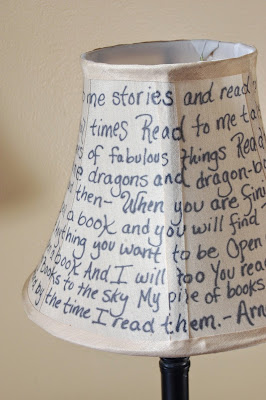 me stories and read
times Read to me ta
s of fabulous things Read
dragons and dragon-b
then- When you are fin
a book and you will find
ything you want to be Open
a book And I will too You rea
Books to the sky My pile of books
by the time I read them.- Arn